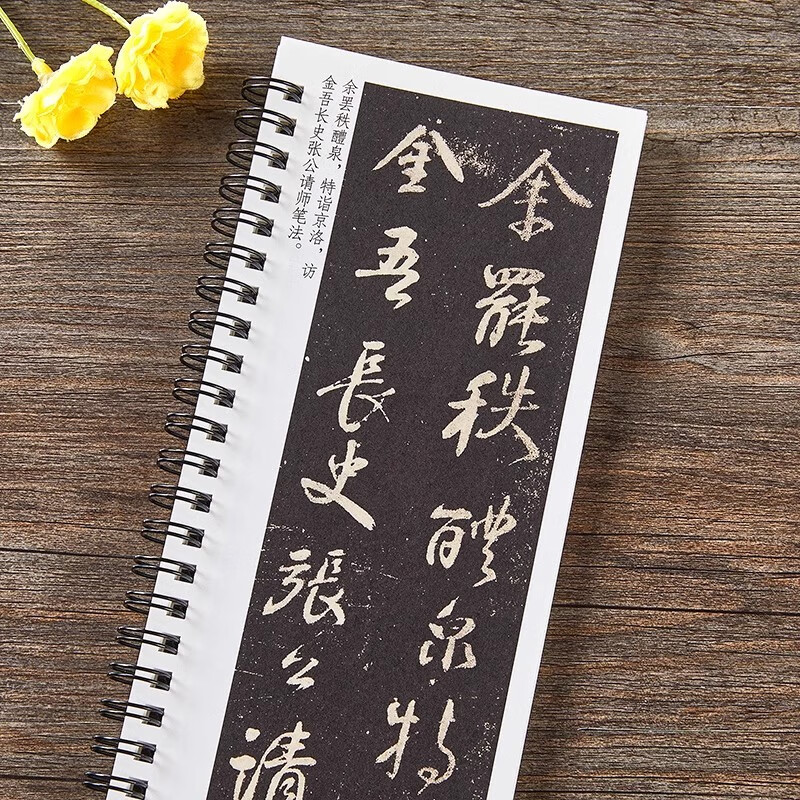 余罢秩醴泉，特诣京洛，访
金吾长史张公请师笔法。
余罷秩醴泉特
金吾長史張公請